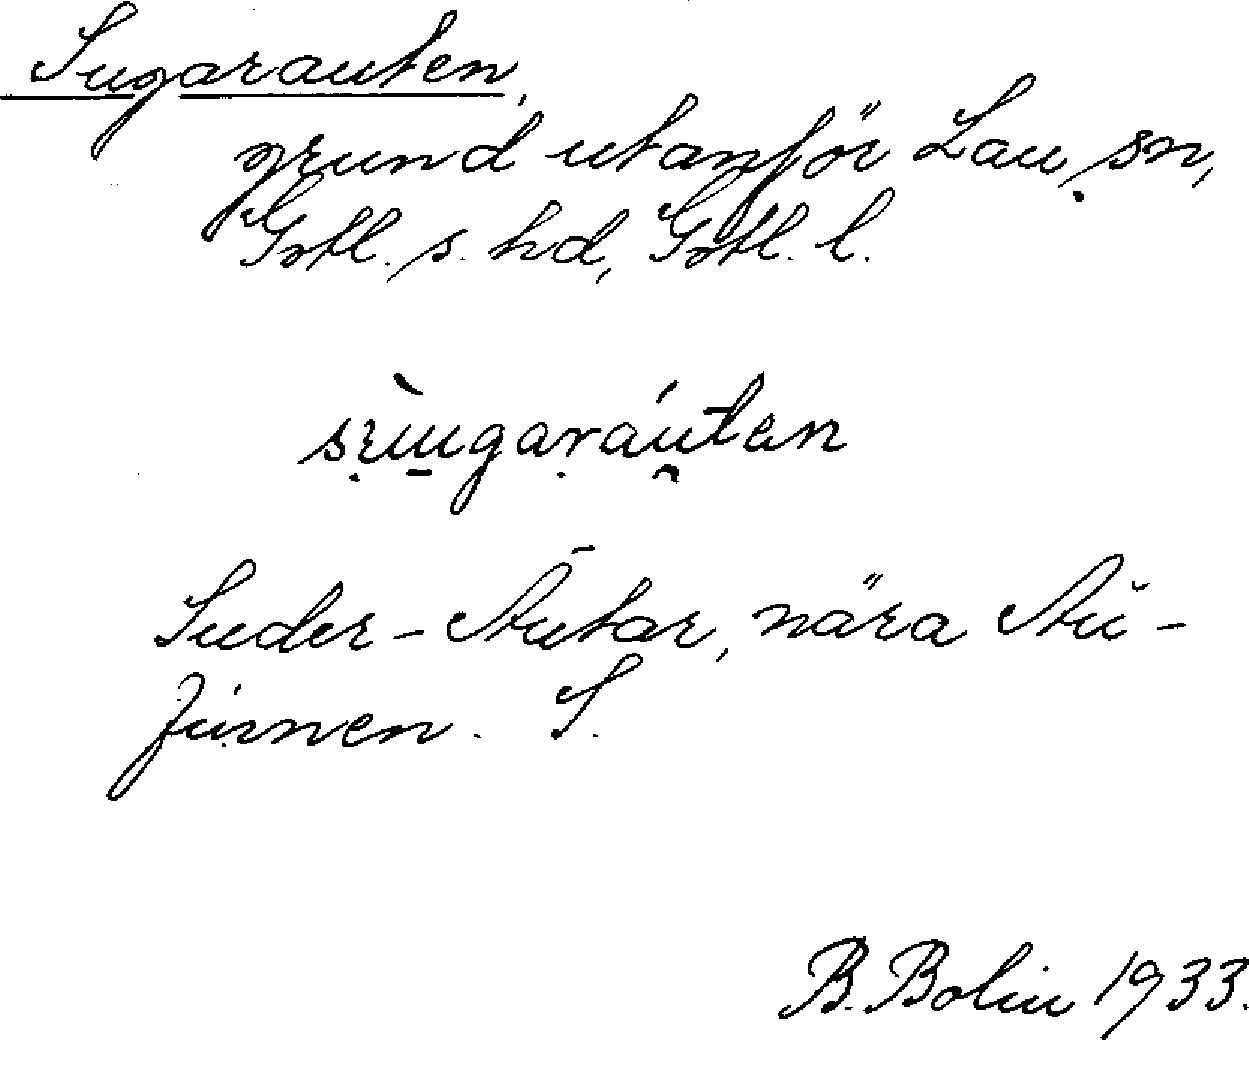 Sugarauten,
grund utanför Lau sn,
Gotl. s. hd, Gotl. l.
Suder-Autar, nära
B. Bolin 1933.